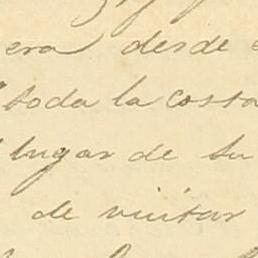 era desde
toda la costa
lugar de su
de visitar